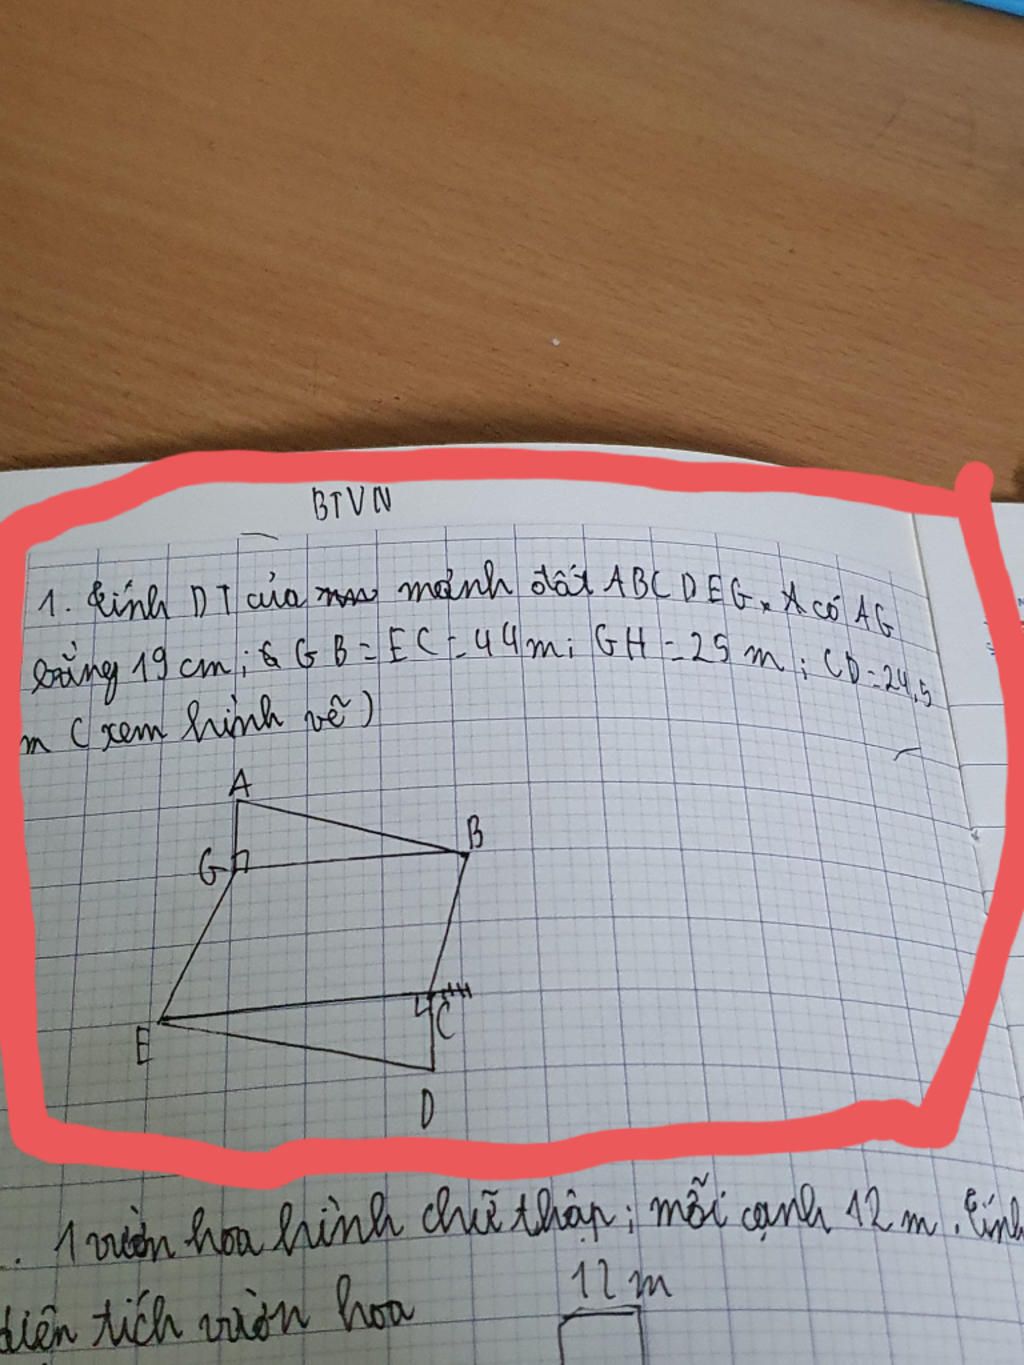 BTVN
1. Tính DT của mảnh đất ABCDEG. có AG
bằng 19 cm; GB = EC = 44m; GH = 25 m; CD = 24,5
m (xem hình vẽ)
A
B
G
E
C
D
1 vườn hoa hình chữ thập; mỗi cạnh 12 m. Tính
diện tích vườn hoa
12 m